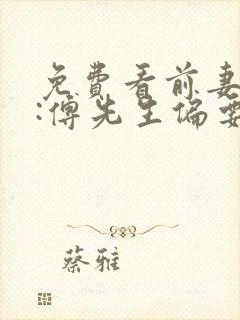 免費看前妻
:傅先生偏要
蔡雅